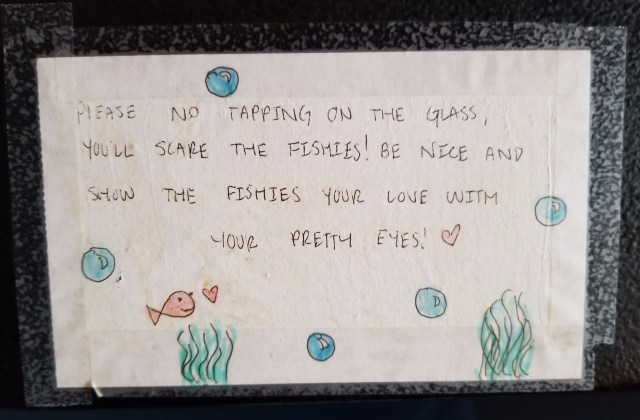 PLEASE NO TAPPING ON THE GLASS,
YOU'LL SCARE THE FISHIES! BE NICE AND
SHOW THE FISHIES YOUR LOVE WITH
YOUR PRETTY EYES! ♡